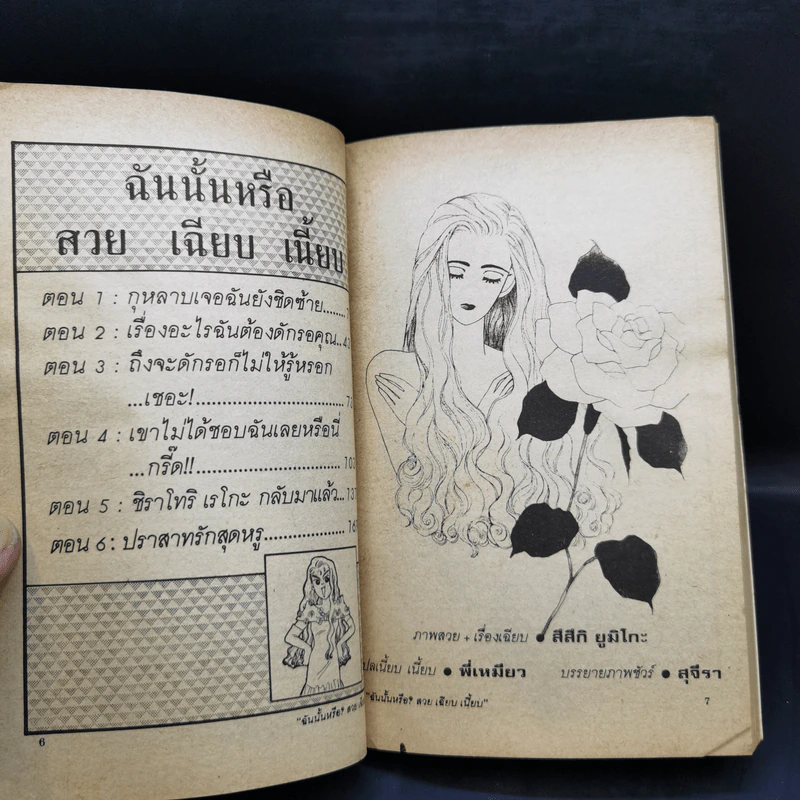 ฉันนั้นหรือ
สวย เฉียบ เนี้ยบ
ตอน 1 : กุหลาบเจอฉันยังชิดซ้าย.......
ตอน 2 : เรื่องอะไรฉันต้องดักรอคุณ..4
ตอน 3 : ถึงจะดักรอก็ไม่ให้รู้หรอก
...เชอะ!................................7
ตอน 4 : เขาไม่ได้ชอบฉันเลยหรือนี่
...กรี๊ด!!............................10
ตอน 5 : ชิราโทริ เรโกะ กลับมาแล้ว...13
ตอน 6 : ปราสาทรักสุดหรู.................16
"ฉันนั้นหรือ? สวย
6
ภาพสวย + เรื่องเฉียบ ● สึสึกิ ยูมิโกะ
เนี้ยบ เนี้ยบ ● พี่เหมียว บรรยายภาพชัวร์ ● สุจีรา
"ฉันนั้นหรือ? สวย เฉียบ เนี้ยบ"
7